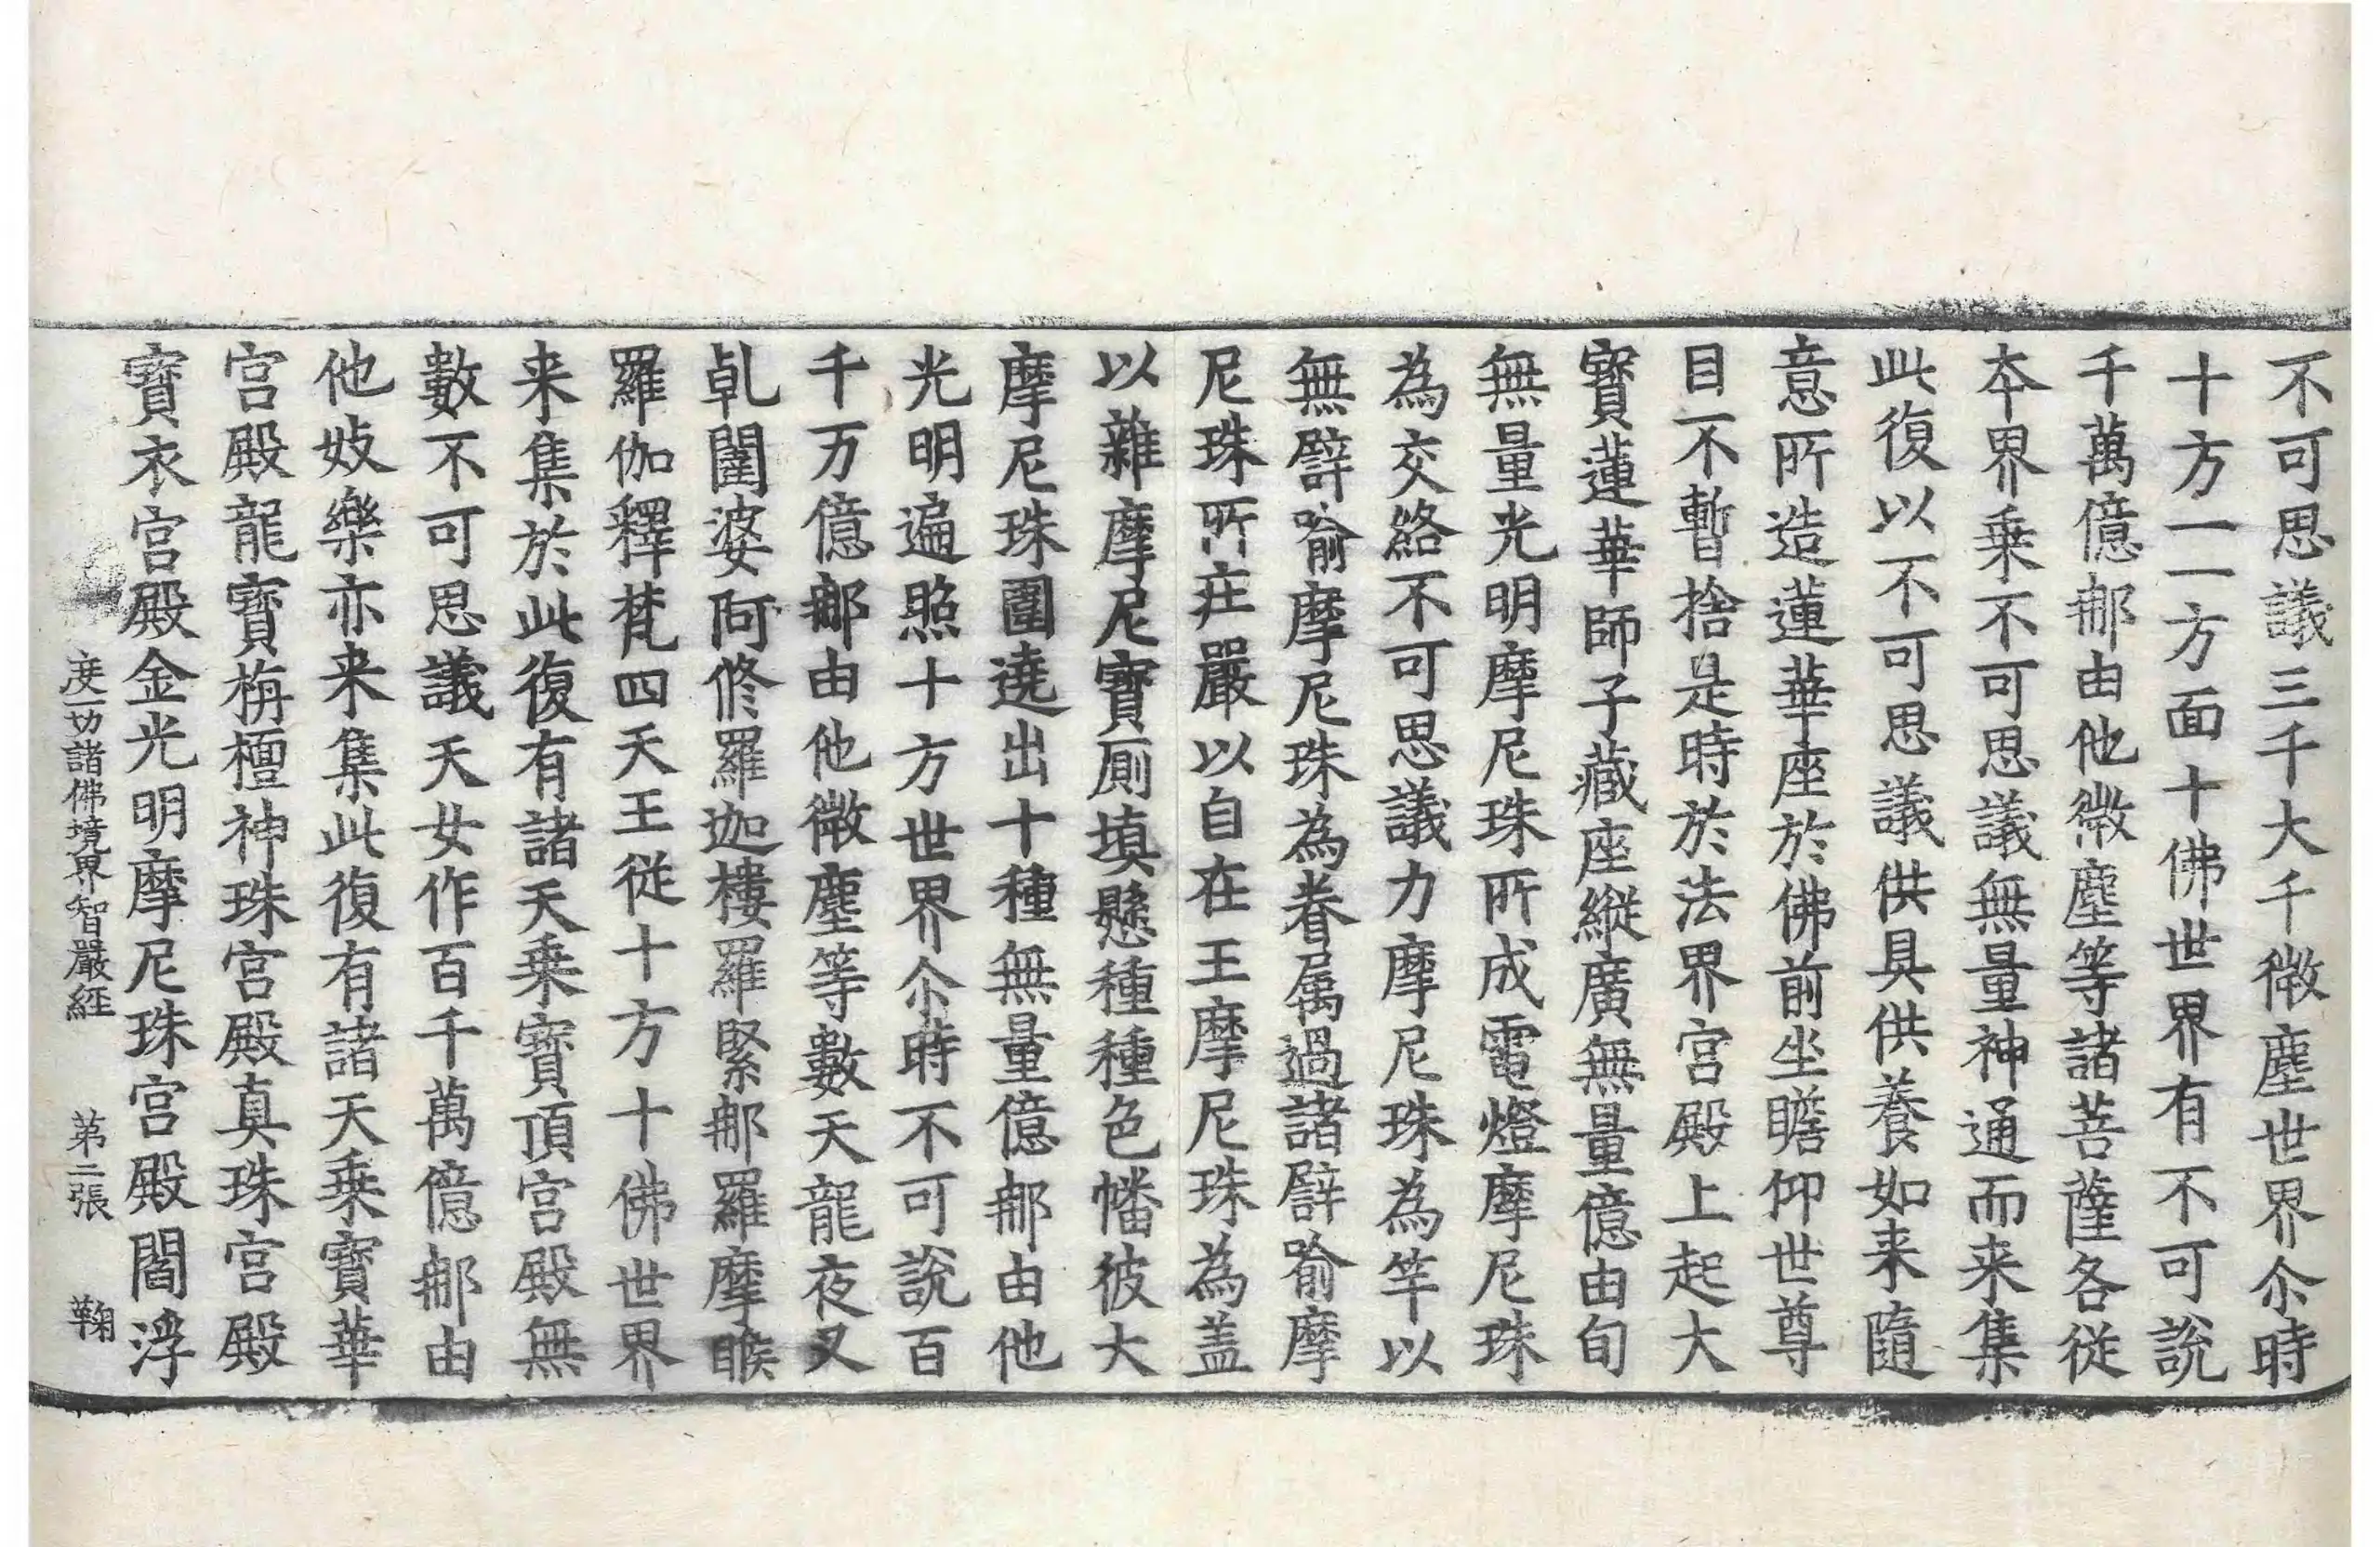 不可思議三千大千微塵世界尒時
十方一一方面十佛世界有不可說
千萬億𨚗由他微塵等諸菩薩各從
本界乗不可思議無量神通而来集
此復以不可思議供具供養如来隨
意所造蓮華座於佛前坐瞻仰世尊
目不暫捨是時於法界宫殿上起大
寳蓮華師子藏座縱廣無量億由旬
無量光明摩尼珠所成電燈摩尼珠
為交絡不可思議力摩尼珠為竿以
無譬喻摩尼珠為眷属過諸譬喻摩
尼珠所庄嚴以自在王摩尼珠為盖
以雜摩尼寳廁填懸種種色幡彼大
摩尼珠圍遶出十種無量億𨚗由他
光明遍照十方世界尒時不可說百
千万億𨚗由他微塵等數天龍夜叉
乹闥婆阿修羅迦樓羅緊𨚗羅摩睺
羅伽釋梵四天王從十方十佛世界
来集於此復有諸天乗寳頂宫殿無
數不可思議天女作百千萬億𨚗由
他妓樂亦来集此復有諸天乗寳華
宫殿龍寳栴檀神珠宫殿真珠宫殿
寳衣宫殿金光明摩尼珠宫殿閻浮
度一切諸佛境界智嚴経 第二張 鞠